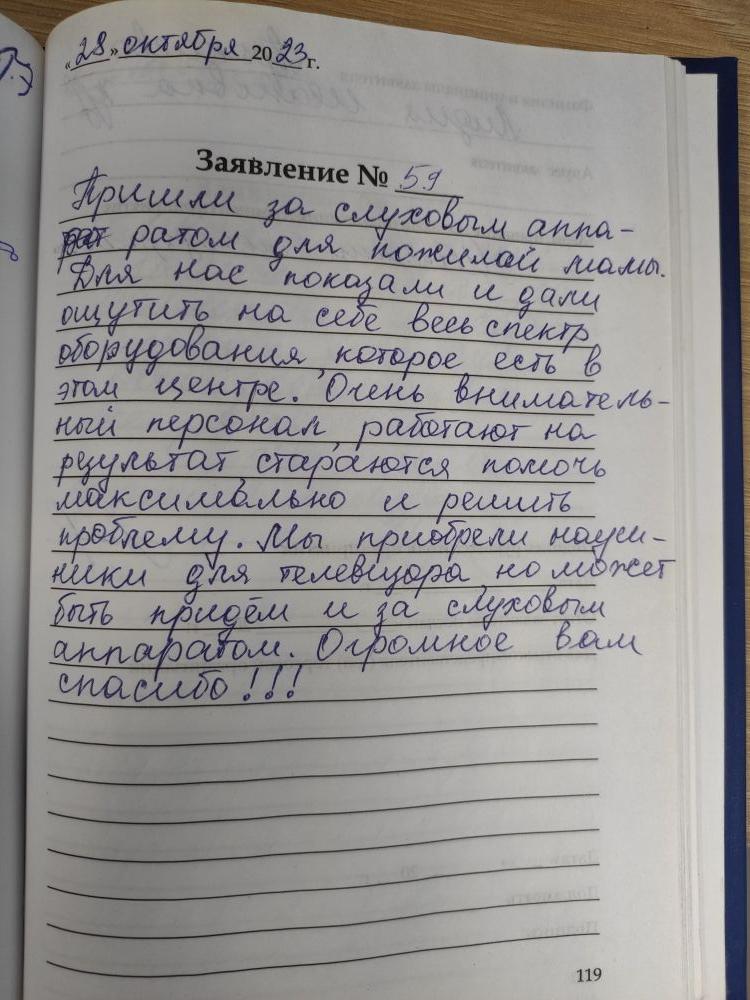 «28» октября 2023 г.
Заявление № 59
Пришли за слуховым аппа-
ратом для пожилой мамы.
Для нас показали и дали
ощутить на себе весь спектр
оборудования, которое есть в
этом центре. Очень вниматель-
ный персонал, работают на
результат, стараются помочь
максимально и решить
проблему. Мы приобрели науш-
ники для телевизора, но может
быть придём и за слуховым
аппаратом. Огромное вам
спасибо!!!
119